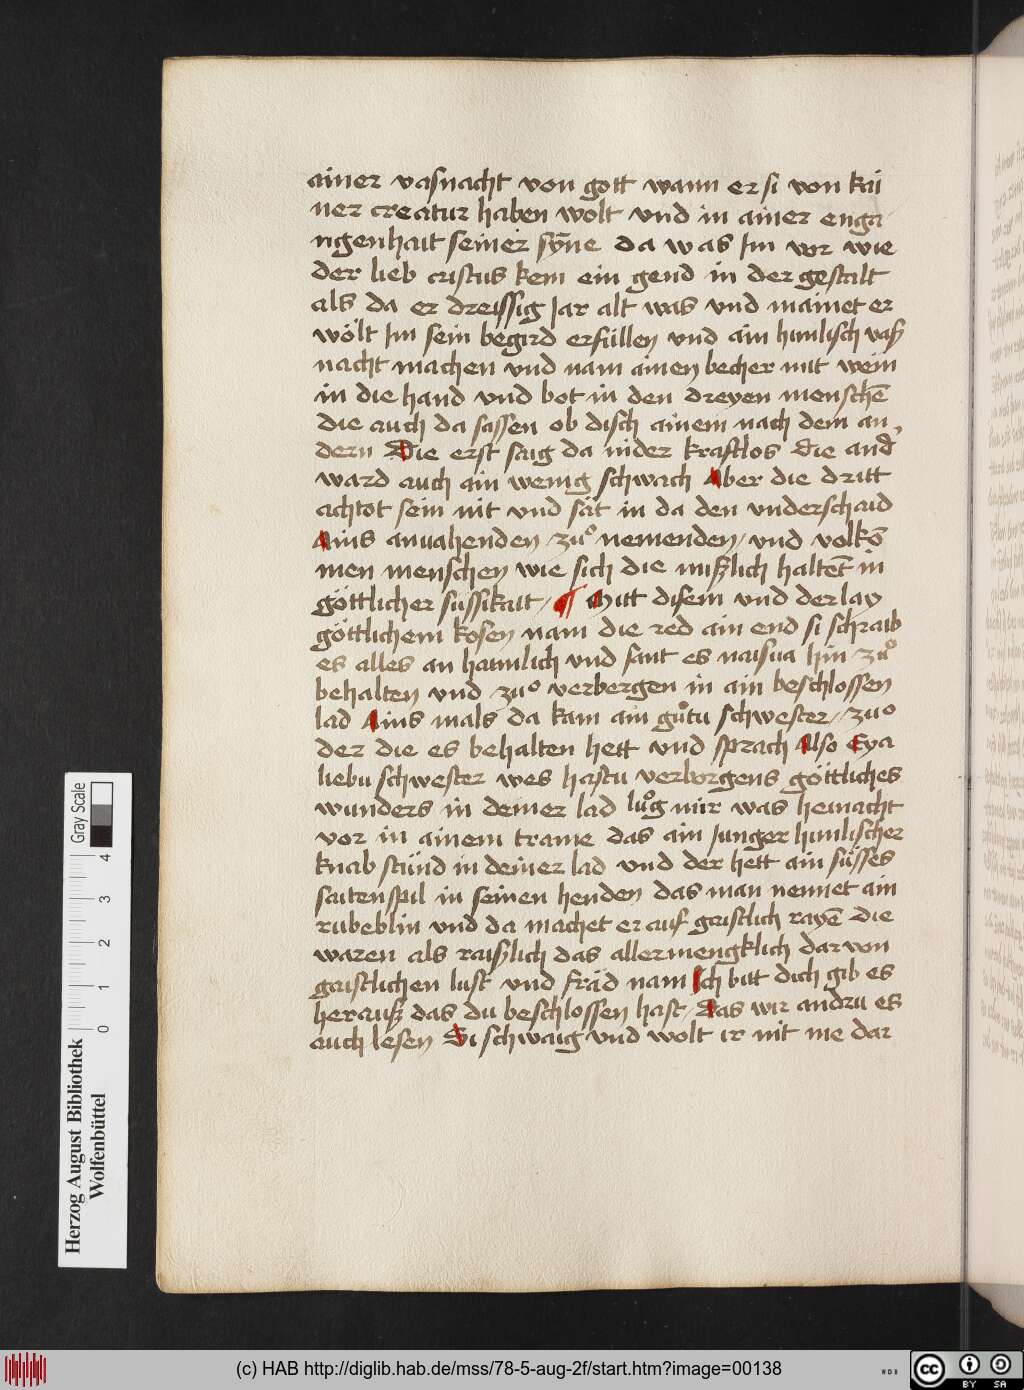 ainer vasnacht von gott wann er si von kai
ner creatur haben wolt vnd in ainer enga
ngenhait seiner syñe da was Jm vor wie
der lieb cristus kem ein gend in der gestalt
als da er dreissig Jar alt was vnd mainet er
wölt Jm sein begird erfüllen vnd ain himlisch vaß
nacht machen vnd nam ainen becher mit wein
in die hand vnd bot in den dreyen menschē
die auch da sassen ob disch ainem nach dem an
dern Die erst saig da nider kraftlos die and
ward auch ain wenig schwach Aber die dritt
achtot sein nit vnd sät in da den vnderschaid
Ains anuahenden / zuͦ nemenden / vnd volkō
men menschen wie sich die mißlich haltēt in
göttlicher süssikait / ¶ Mitt disem vnd der lay
göttlichem kosen nam die red ain end si schraib
es alles an haimlich vnd sant es naiswa hin zuͦ
behalten vnd zuͦ verbergen in ain beschlossen
lad Ains mals da kam ain guͦtu schwester / zuͦ
der die es behalten hett vnd sprach Also Eya
liebu schwester wes hastu verborgens göttliches
wunders in deiner lad luͦg mir was heinacht
vor in ainem trame das ain Junger himlischer
knab stünd in deiner lad vnd der hett ain süsses
saitenspil in seinen henden das man nennet ain
rubeblin vnd da machet er auf gaistlich rayē die
waren als raißlich das allermengklich dar von
gaistlichen lust vnd fräd nam Ich bitt dich gib es
herauß das du beschlossen hast / Das wir andru es
auch lesen Si schwaig vnd wolt ir nit me dar
Herzog August Bibliothek
Wolfenbüttel
0 1 2 3 4
Gray Scale
(c) HAB http://diglib.hab.de/mss/78-5-aug-2f/start.htm?image=00138
WDB
CC BY SA